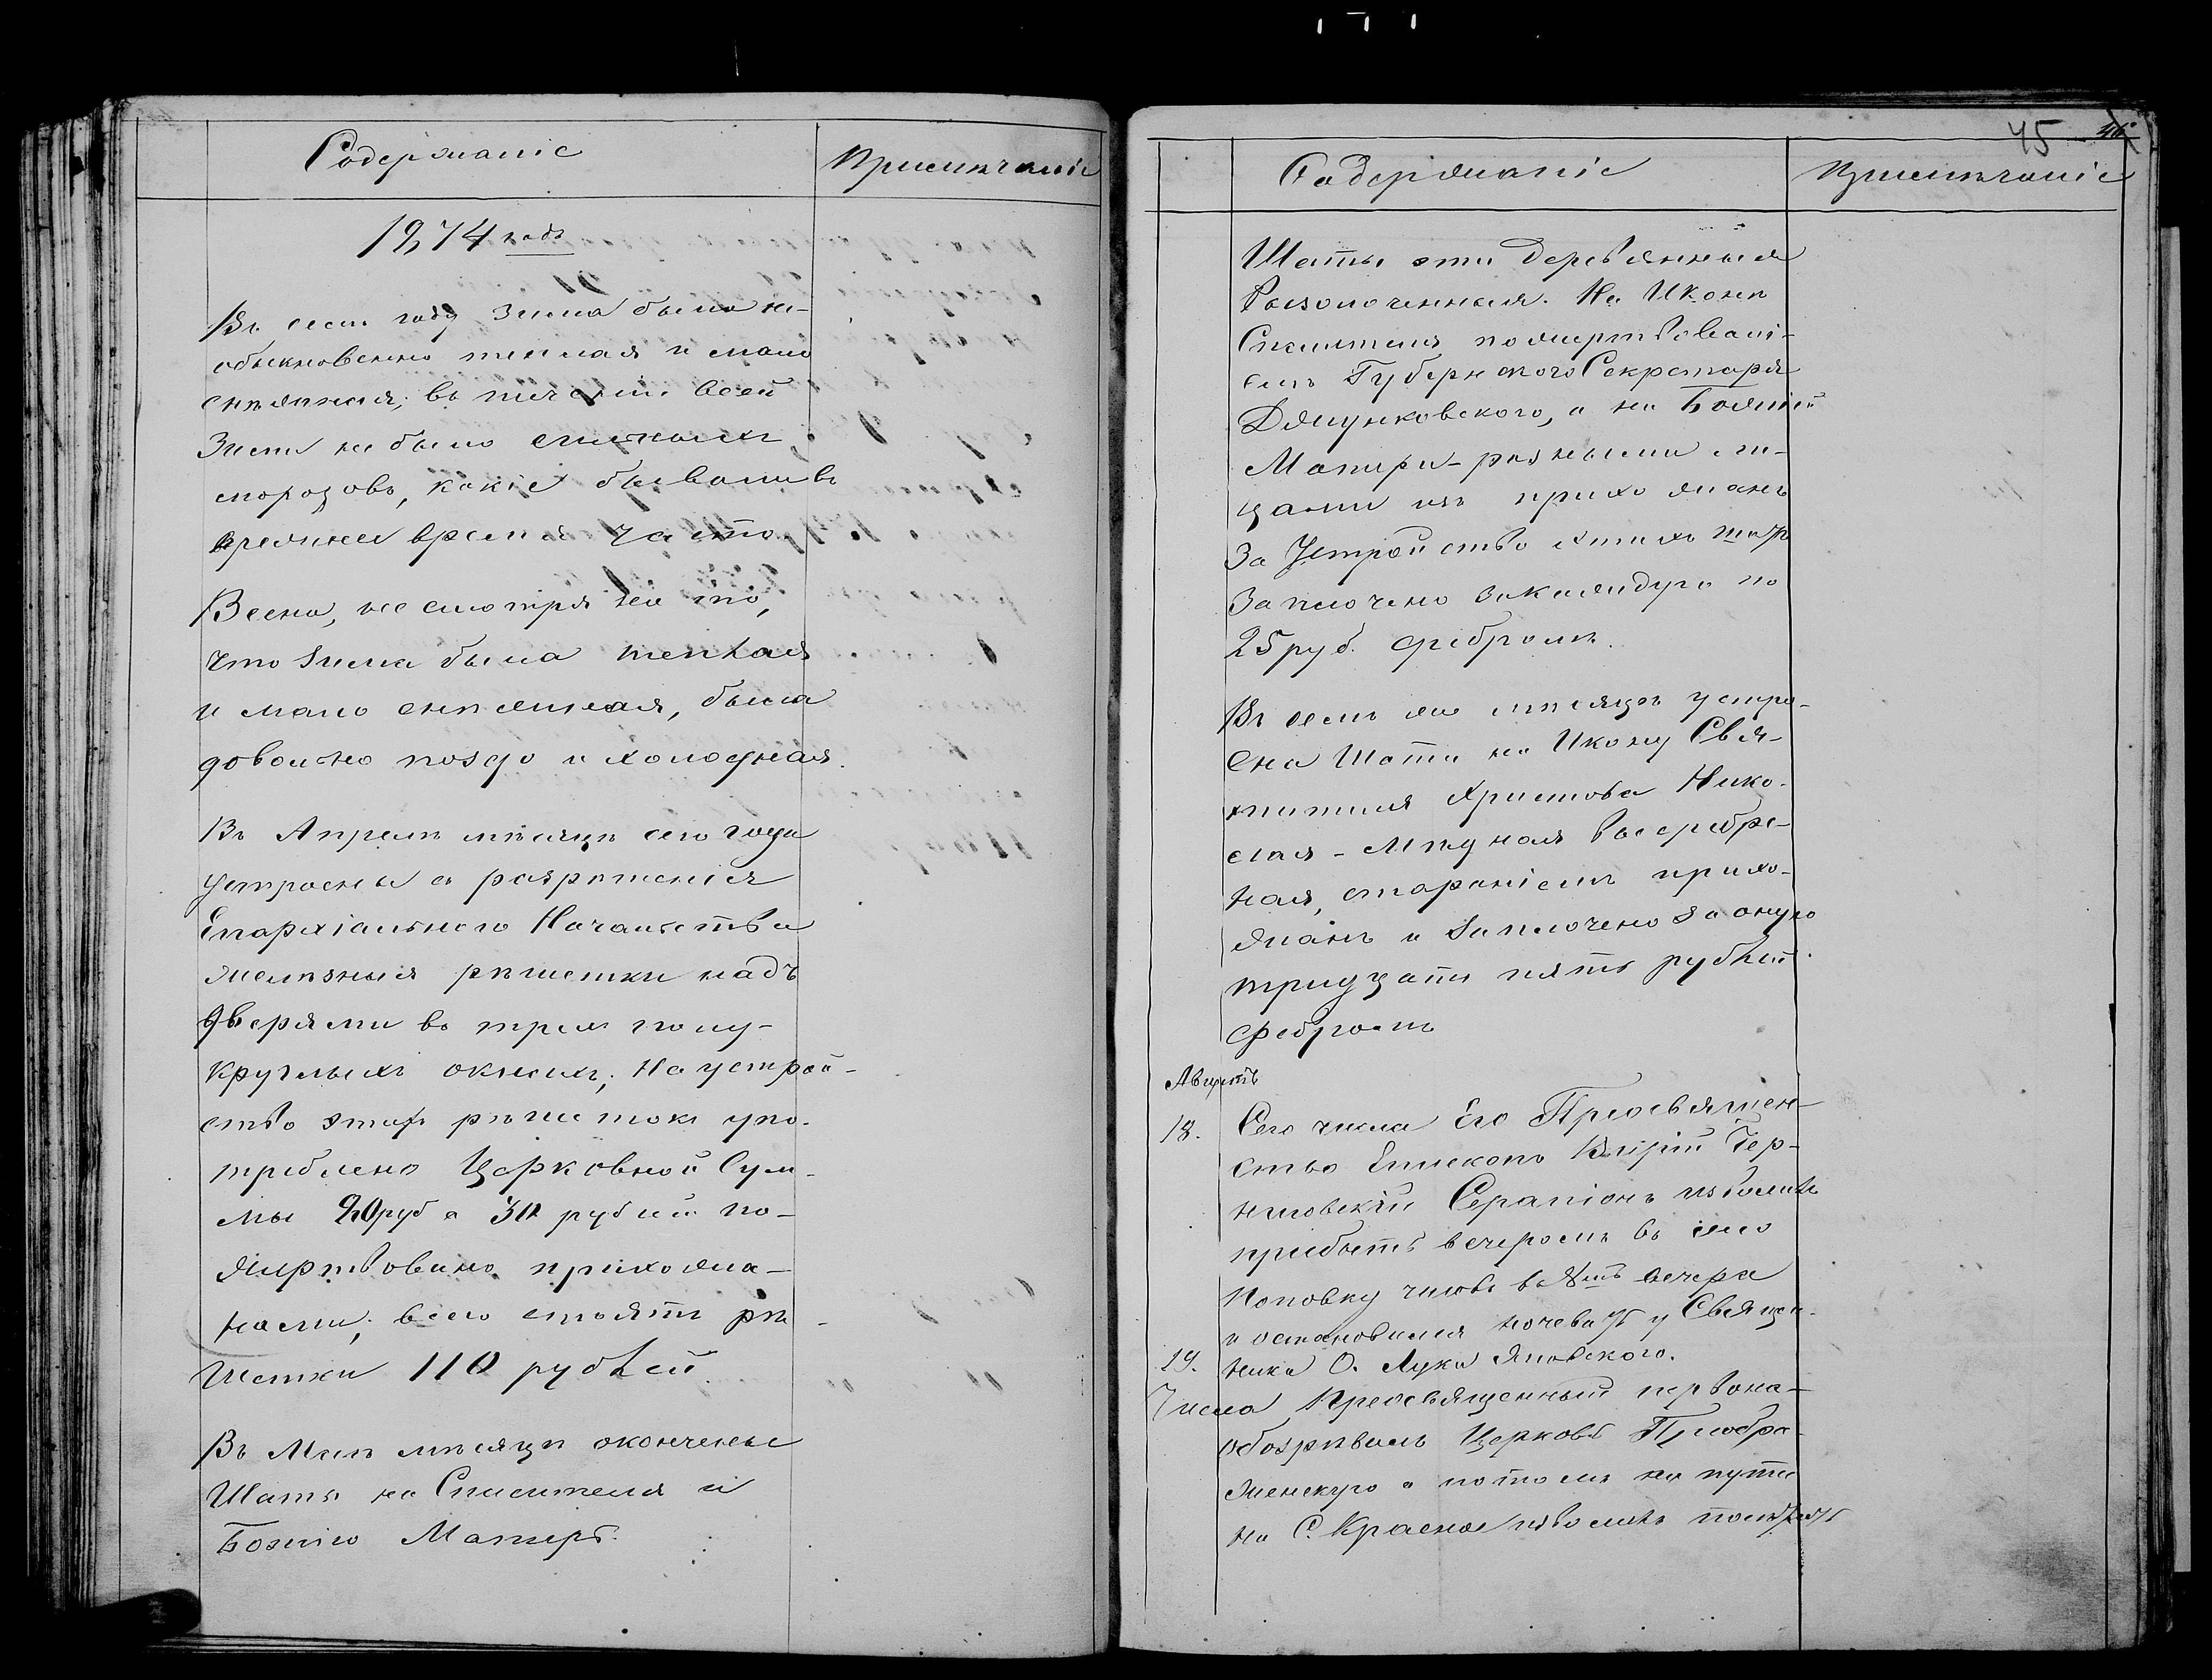 Содержаніе
Примѣчаніе
1874 годъ
Въ семъ году зима была не-
обыкновенно теплая и мало
снѣжная; въ теченіи всей
Зимы не было сильныхъ
морозовъ, какіе бывали въ
прежнее время часто.
Весна, не смотря на то,
что зима была теплая
и мало снѣжная, была
довольно поздо и холодная.
Въ Апрелѣ мѣсяцѣ сего года
устроены съ разрѣшенія
Епархіальнаго Начальства
желѣзныя рѣшетки надъ
дверями въ трехъ полу-
круглыхъ окнахъ; На устрой-
ство этихъ рѣшетокъ упо-
треблено Церковной Сум-
мы руб а рублей по-
жертвовано прихожа-
нами; всего стоятъ рѣ-
шетки 110 рублей.
Въ Маѣ мѣсяцѣ окончены
Шаты на Спасителя и
Божію Матерь.
45
Содержаніе
Примѣчаніе
Шаты эти деревянныя
Вызолоченныя. На Иконѣ
Спасителя пожертвовані-
емъ Губернскаго Секретаря
Джунковскаго, а на Божіей
Матери - разными ли-
цами изъ прихожанъ
За Устройство этихъ шатъ
Заплочено за каждую по
25 руб. сребромъ.
Въ семъ же мѣсяцѣ устро-
ена Шата на Икону Свя-
тителя Христова Нико-
лая - Мѣдная высребре-
ная, стараніемъ прихо-
жанъ и Заплочено за оную
тридцать пять рублей
сребромъ
Августъ
18. Сего числа Его Преосвящен-
ство Епископъ Черн-
иговскій Серапіонъ изволилъ
прибыть вечеромъ въ село
Поповку часовъ въ вечера
и остановился ночевать у Священ-
19. ника О. Луки Яновского.
Числа Преосвященный первона-
обозрѣвалъ Церковь Преобра-
женскую а потомъ на пути
на С. Красное изволилъ